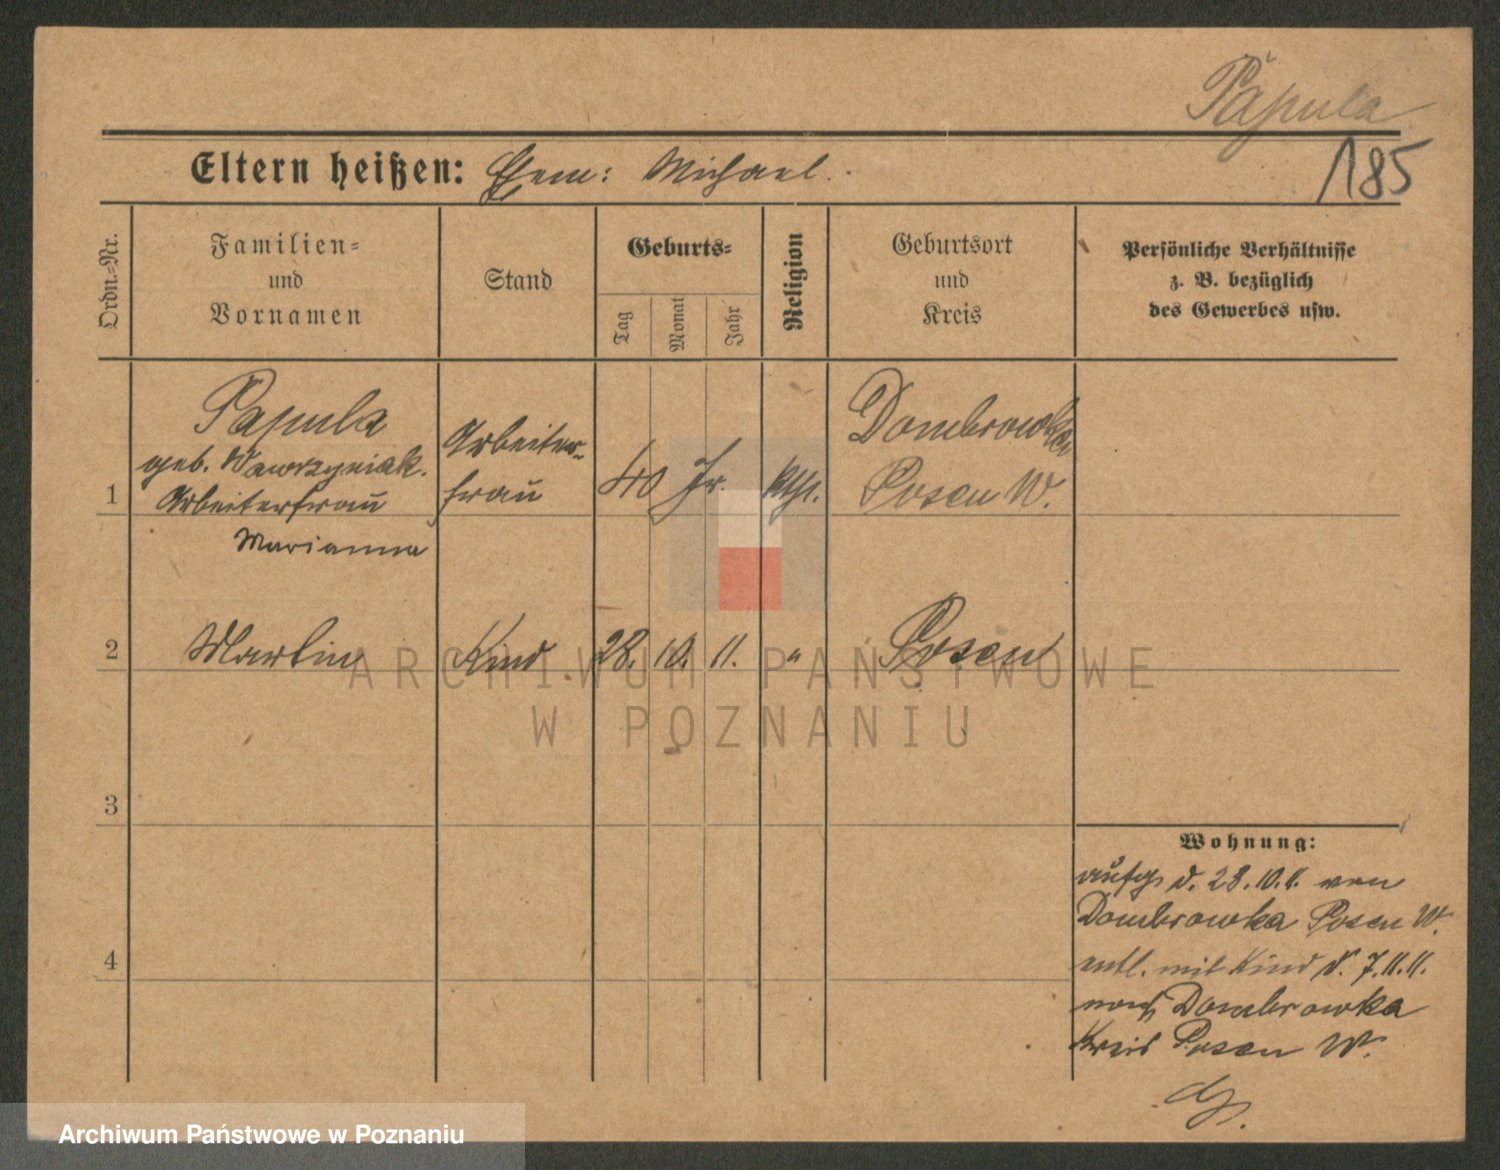 Papula
185
Eltern heißen: Ehem: Michael.
Ordn.-Nr.
Familien-
und
Vornamen
Stand
Geburts-
Tag
Monat
Jahr
Religion
Geburtsort
und
Kreis
Persönliche Verhältnisse
z. B. bezüglich
des Gewerbes usw.
1
Papula
geb. Wawrzyniak.
Arbeiterfrau
Marianna
Arbeiter-
frau
40 Jr.
kth.
Dombrowka
Posen W.
2
Martin
Kind
28. 10. 11.
"
Posen
3
4
Wohnung:
aufg. d. 28.10.11. von
Dombrowka Posen W.
entl. mit Kind d. 7.11.11.
nach Dombrowka
Kreis Posen W.
ARCHIWUM PAŃSTWOWE
W POZNANIU
Archiwum Państwowe w Poznaniu